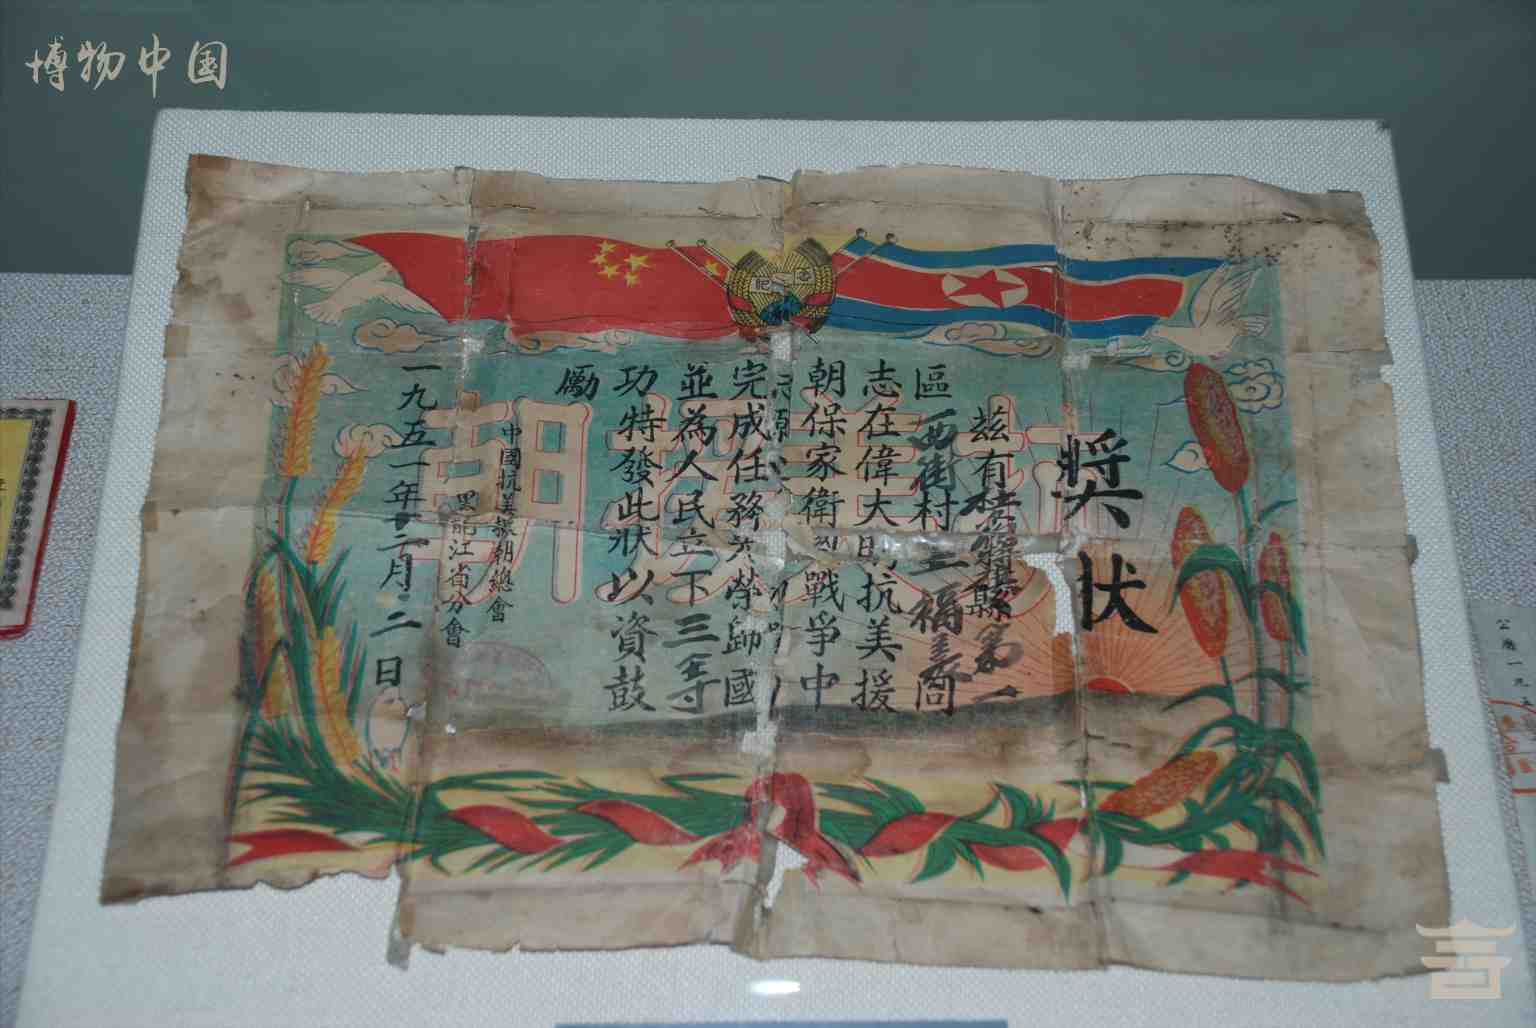 博物中国
獎狀
茲有縣第一
區西街村王福同
志在偉大的抗美援
朝保家衛國戰爭中
完成任務光榮歸國
並為人民立下三等
功特發此狀以資鼓
勵
中國抗美援朝總會
黑龍江省分會
一九五一年十二月二日
抗美援朝